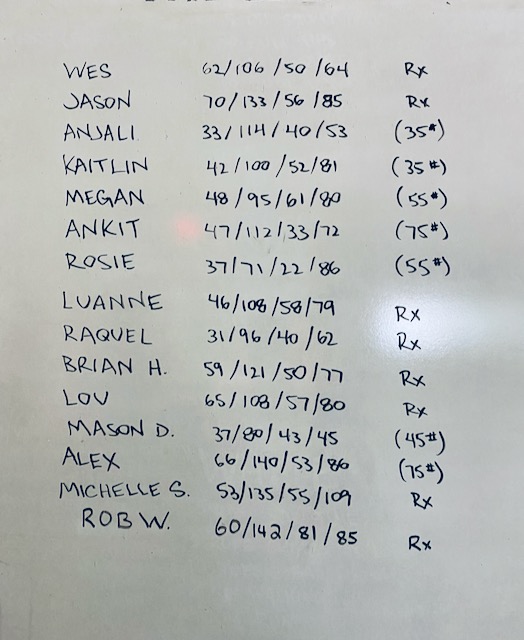 WES 62/106/50/64 Rx
JASON 70/133/56/85 Rx
ANJALI 33/114/40/53 (35#)
KAITLIN 42/100/52/81 (35#)
MEGAN 48/95/61/80 (55#)
ANKIT 47/112/33/72 (75#)
ROSIE 37/71/22/86 (55#)
LUANNE 46/108/58/79 Rx
RAQUEL 31/96/40/62 Rx
BRIAN H. 59/121/50/77 Rx
LOU 65/108/57/80 Rx
MASON D. 37/80/43/45 (45#)
ALEX 66/140/53/86 (75#)
MICHELLE S. 53/135/55/109 Rx
ROB W. 60/142/81/85 Rx